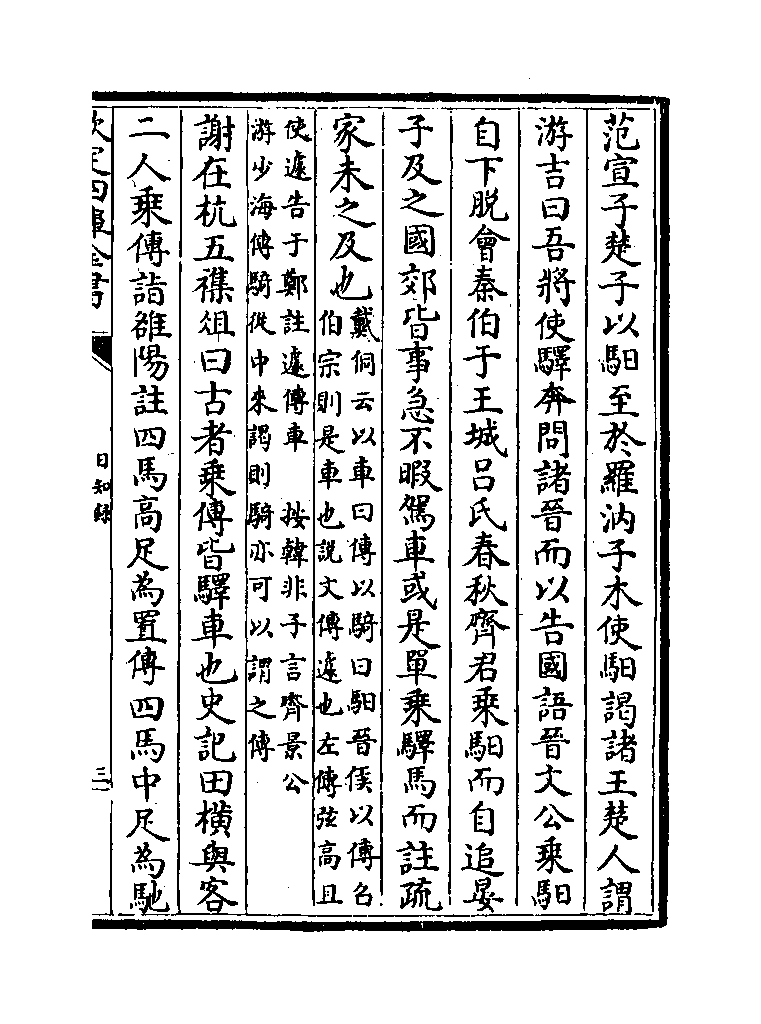 范宣子楚子以馹至於羅汭子木使馹謁諸王楚人謂
游吉曰吾將使驛奔問諸晉而以告國語晉文公乗馹
自下脱會秦伯于王城吕氏春秋齊君乗馹而自追晏
子及之國郊皆事急不暇駕車或是單乗驛馬而註疏
家未之及也戴侗云以車曰傳以騎曰馹晉侯以傳召
伯宗則是車也説文傳遽也左傳弦髙且
使遽告于鄭註遽傳車 按韓非子言齊景公
游少海傳騎從中來謁則騎亦可以謂之傳
謝在杭五襍俎曰古者乗傳皆驛車也史記田横與客
二人乗傳詣雒陽註四馬高足為置傳四馬中足為馳
欽定四庫全書
日知録
三